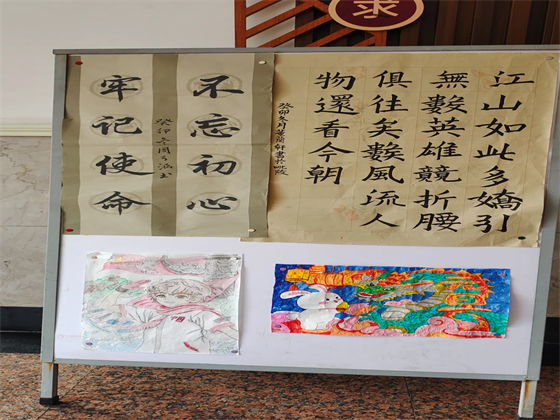 江山如此多嬌引
無數英雄競折腰
俱往矣數風流人
物還看今朝
癸卯冬月
不忘初心
牢记使命
癸卯冬